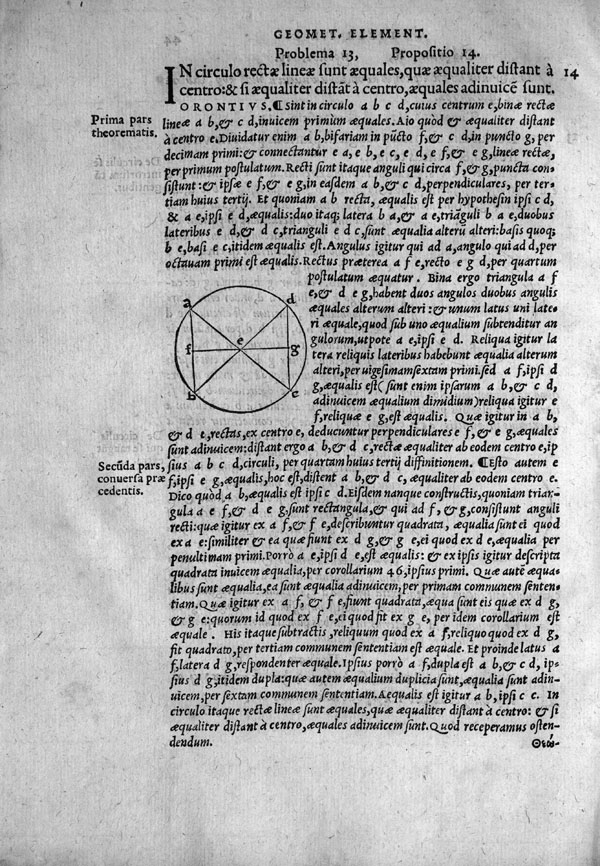 GEOMET. ELEMENT.
Problema 13, Propositio 14.
IN circulo rectæ lineæ sunt æquales, quæ æqualiter distant à 14
centro: & si æqualiter distāt à centro, æquales adinuicē sunt.
ORONTIVS. ¶ Sint in circulo a b c d, cuius centrum e, binæ rectæ
Prima pars
theorematis.
lineæ a b, & c d, inuicem primùm æquales. Aio quòd & æqualiter distant
à centro e. Diuidatur enim a b, bifariam in pūcto f, & c d, in puncto g, per
decimam primi: & connectantur e a, e b, e c, e d, e f, & e g, lineæ rectæ,
per primum postulatum. Recti sunt itaque anguli qui circa f, & g, puncta con-
sistunt: & ipsæ e f, & e g, in easdem a b, & c d, perpendiculares, per ter-
tiam huius tertij. Et quoniam a b recta, æqualis est per hypothesin ipsi c d,
& a e, ipsi e d, æqualis: duo itaq; latera b a, & a e, triāguli b a e, duobus
lateribus e d, & d c, trianguli e d c, sunt æqualia alterū alteri: basis quoq;
b e, basi e c, itidem æqualis est. Angulus igitur qui ad a, angulo qui ad d, per
octauam primi est æqualis. Rectus præterea a f e, recto e g d, per quartum
postulatum æquatur. Bina ergo triangula a f
e, & d e g, habent duos angulos duobus angulis
æquales alterum alteri: & unum latus uni late-
ri æquale, quod sub uno æqualium subtenditur an
gulorum, utpote a e, ipsi e d. Reliqua igitur la
tera reliquis lateribus habebunt æqualia alterum
alteri, per uigesimamsextam primi. sed a f, ipsi d
g, æqualis est (sunt enim ipsarum a b, & c d,
adinuicem æqualium dimidium) reliqua igitur e
f, reliquæ e g, est æqualis. Quæ igitur in a b,
a d
f e g
b c
& d c, rectas, ex centro e, deducuntur perpendiculares e f, & e g, æquales
sunt adinuicem: distant ergo a b, & d c, rectæ æqualiter ab eodem centro e, ip
Secūda pars,
conuersa præ
cedentis.
sius a b c d, circuli, per quartam huius tertij diffinitionem. ¶ Esto autem e
f, ipsi e g, æqualis, hoc est, distent a b, & d c, æqualiter ab eodem centro e.
Dico quòd a b, æqualis est ipsi c d. Eisdem nanque constructis, quoniam trian-
gula a e f, & d e g, sunt rectangula, & qui ad f, & g, consistunt anguli
recti: quæ igitur ex a f, & f e, describuntur quadrata, æqualia sunt ei quod
ex a e: similiter & ea quæ fiunt ex d g, & g e, ei quod ex d e, æqualia per
penultimam primi. Porrò a e, ipsi d e, est æqualis: & ex ipsis igitur descripta
quadrata inuicem æqualia, per corollarium 46, ipsius primi. Quæ autē æqua-
libus sunt æqualia, ea sunt æqualia adinuicem, per primam communem senten-
tiam. Quæ igitur ex a f, & f e, fiunt quadrata, æqua sunt eis quæ ex d g,
& g e: quorum id quod ex f e, ei quod fit ex g e, per idem corollarium est
æquale. His itaque subtractis, reliquum quod ex a f, reliquo quod ex d g,
fit quadrato, per tertiam communem sententiam est æquale. Et proinde latus a
f, latera d g, respondenter æquale. Ipsius porrò a f, dupla est a b, & c d, ip-
sius d g, itidem dupla: quæ autem æqualium duplicia sunt, æqualia sunt adin-
uicem, per sextam communem sententiam. Aequalis est igitur a b, ipsi c c. In
circulo itaque rectæ lineæ sunt æquales, quæ æqualiter distant à centro: & si
æqualiter distant à centro, æquales adinuicem sunt. Quod receperamus osten-
dendum.